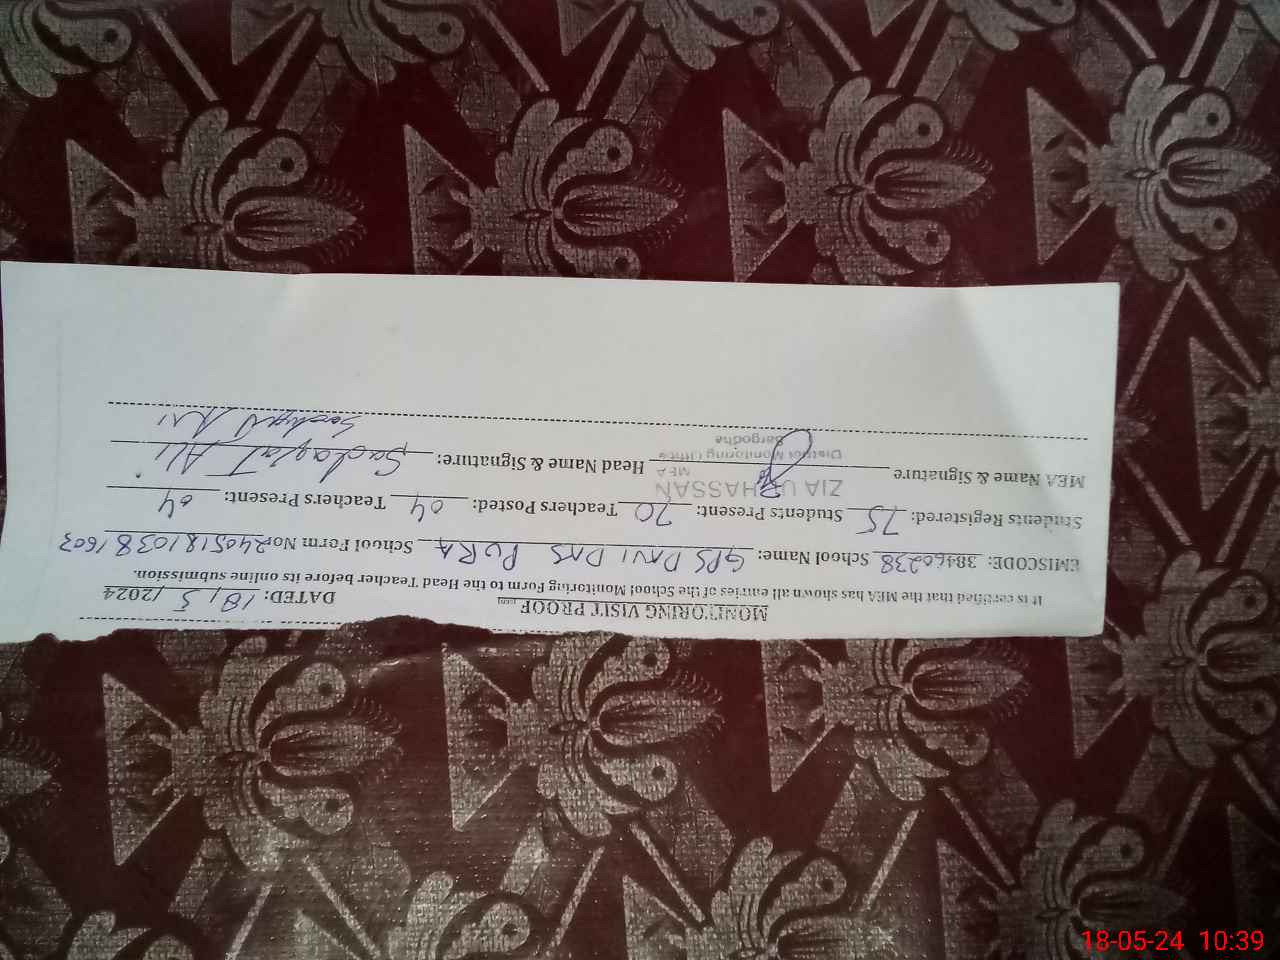 MONITORING VISIT PROOF
DATED: 18/5/2024
It is certified that the MEA has shown all entries of the School Monitoring Form to the Head Teacher before its online submission.
EMISCODE: 38460238 School Name: GPS DANI DAS PURA School Form No. 24051810381603
Students Registered: 75 Students Present: 70 Teachers Posted: 04 Teachers Present: 04
ZIA UL HASSAN
MEA
MEA Name & Signature Head Name & Signature: Sadaqat Ali
District Monitoring Office
Sargodha
Sadaqat Ali
18-05-24 10:39